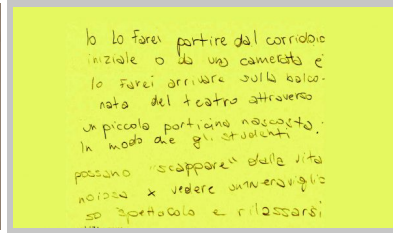 Io Lo farei partire dal corridoio
iniziale o da una cameretta e
lo farei arrivare sulla balco-
nata del teatro attraverso
un piccola porticina nascosta.
In modo che gli studenti
possano "scappare" dalla vita
noiosa x vedere un meraviglio
so spettacolo e rilassarsi